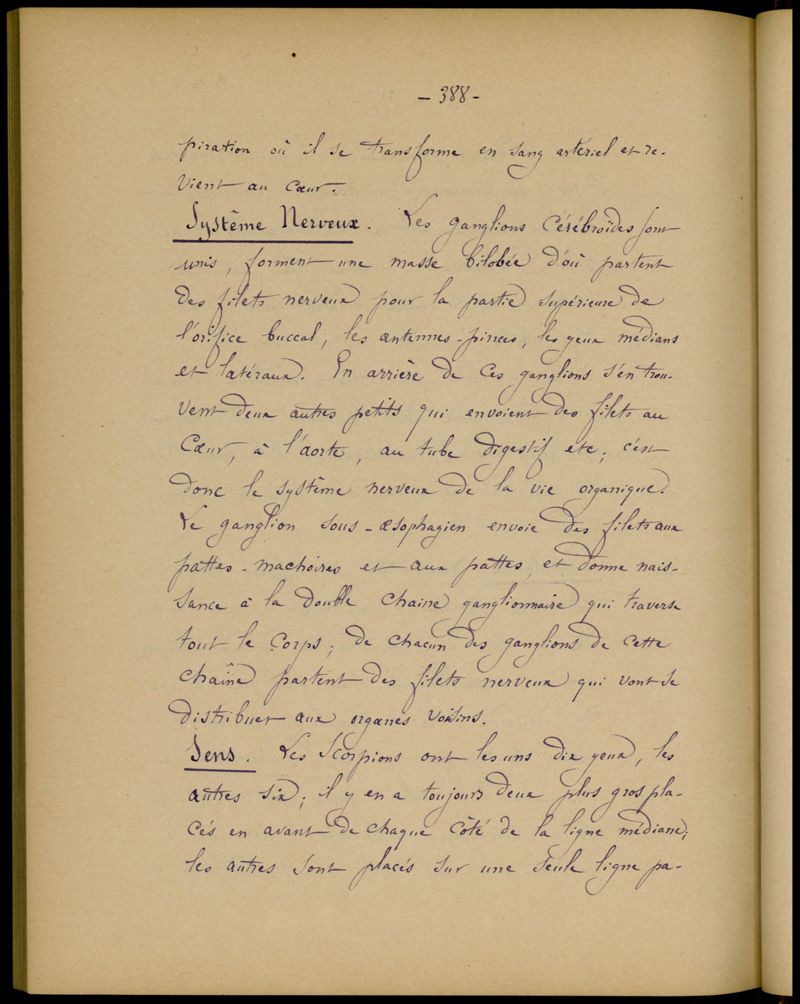 - 388 -
piration où il se transforme en sang artériel et re-
vient au cœur.
Système Nerveux. Les ganglions cérébroïdes sont
unis, forment une masse bilobée d'où partent
des filets nerveux pour la partie supérieure de
l'orifice buccal, les antennes-pinces, les yeux médians
et latéraux. En arrière de ces ganglions s'en trou-
vent deux autres petits qui envoient des filets au
Cœur, à l'aorte, au tube digestif etc; c'est
donc le système nerveux de la vie organique.
Le ganglion sous-œsophagien envoie des filets aux
pattes-machoires et aux pattes, et donne nais-
sance à la double chaine ganglionnaire qui traverse
tout le corps; de chacun des ganglions de cette
chaîne partent des filets nerveux qui vont se
distribuer aux organes voisins.
Sens. Les Scorpions ont les uns dix yeux, les
autres six; il y en a toujours deux plus gros pla-
cés en avant de chaque côté de la ligne médiane;
les autres sont placés sur une seule ligne pa-